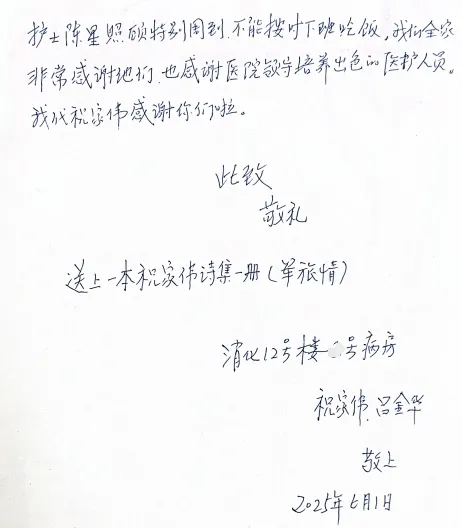 护士陈星照顾特别周到,不能按时下班吃饭,我们全家
非常感谢他们,也感谢医院领导培养出色的医护人员。
我代祝家伟感谢你们啦。
此致
敬礼
送上一本祝家伟诗集一册(军旅情)
消化12号楼 号病房
祝家伟、吕金华
敬上
2025年6月1日